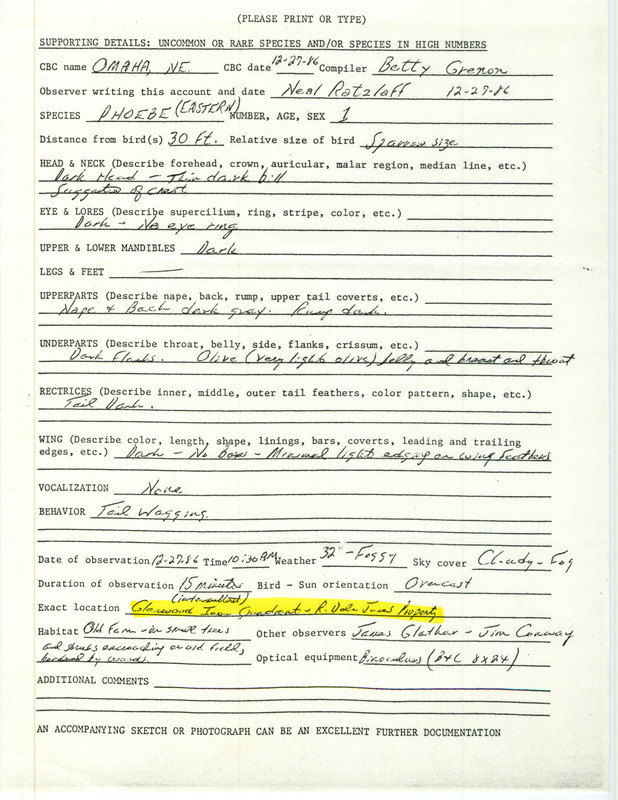 (PLEASE PRINT OR TYPE)
SUPPORTING DETAILS: UNCOMMON OR RARE SPECIES AND/OR SPECIES IN HIGH NUMBERS
CBC name OMAHA, NE. CBC date 12-27-86 Compiler Betty Grenon
Observer writing this account and date Neal Ratzlaff 12-27-86
SPECIES PHOEBE (EASTERN) NUMBER, AGE, SEX 1
Distance from bird(s) 30 ft. Relative size of bird Sparrow size
HEAD & NECK (Describe forehead, crown, auricular, malar region, median line, etc.)
Dark Head - Thin dark bill
Suggestion of crest
EYE & LORES (Describe supercilium, ring, stripe, color, etc.)
Dark - No eye ring
UPPER & LOWER MANDIBLES Dark
LEGS & FEET —
UPPERPARTS (Describe nape, back, rump, upper tail coverts, etc.)
Nape & Back dark gray. Rump dark.
UNDERPARTS (Describe throat, belly, side, flanks, crissum, etc.)
Dark Flanks. Olive (very light olive) belly and breast and throat
RECTRICES (Describe inner, middle, outer tail feathers, color pattern, shape, etc.)
Tail Dark.
WING (Describe color, length, shape, linings, bars, coverts, leading and trailing
edges, etc.) Dark - No Bars - Minimal light edging on wing feathers
VOCALIZATION None
BEHAVIOR Tail Wagging.
Date of observation 12-27-86 Time 10:30 AM Weather 32° - Foggy Sky cover Cloudy - Fog
Duration of observation 15 minutes (intermittent) Bird - Sun orientation Overcast
Exact location Glenwood Iowa Quadrant - R. Dale Jones Property
Habitat Old Farm - in small trees Other observers James Glather - Jim Conway
and shrubs encroaching on old field,
bordered by woods. Optical equipment Binoculars (B&L 8X24)
ADDITIONAL COMMENTS
AN ACCOMPANYING SKETCH OR PHOTOGRAPH CAN BE AN EXCELLENT FURTHER DOCUMENTATION